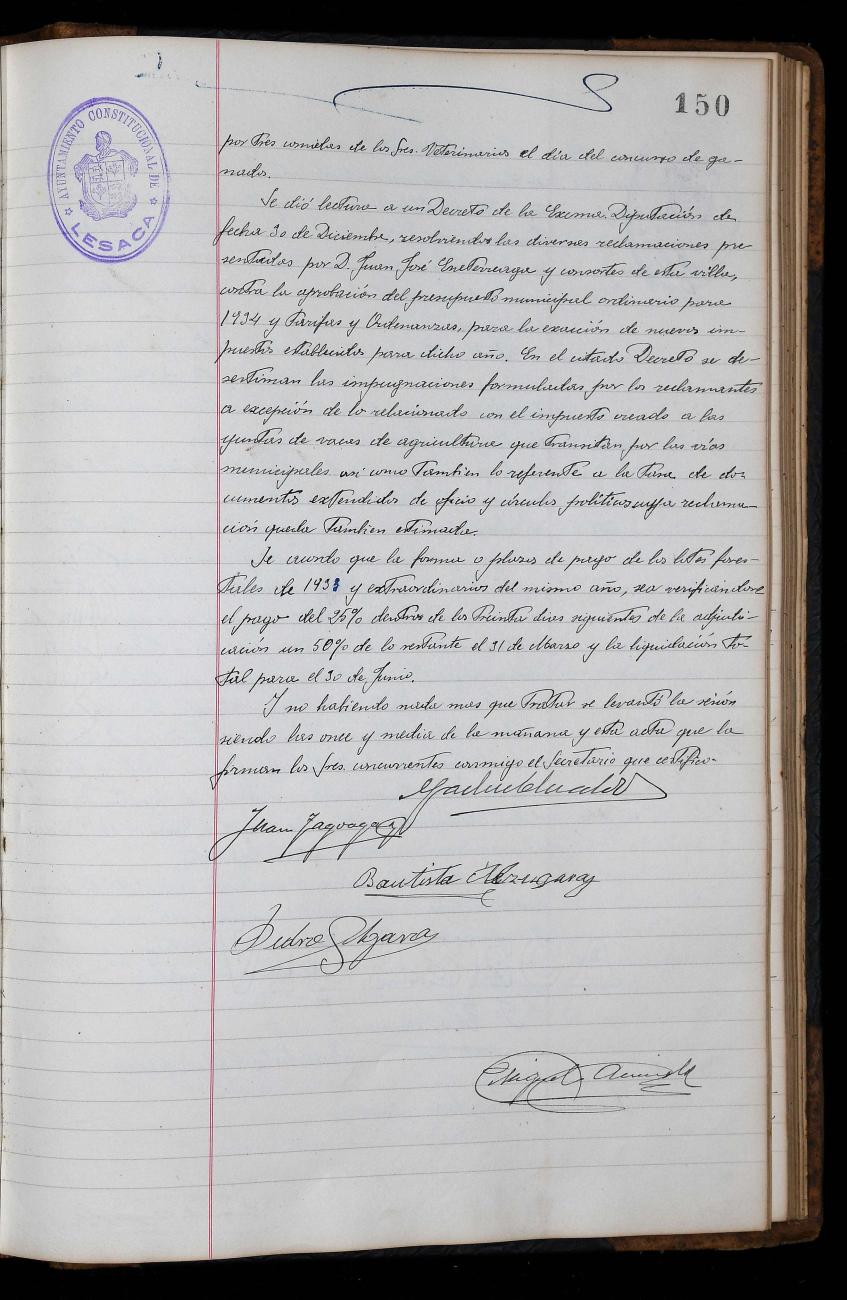 150
AYUNTAMIENTO CONSTITUCIONAL DE
LESACA
por tres comidas de los Sres. Veterinarios el día del concurso de ga-
nado.
Se dió lectura a un Decreto de la Exema. Diputación de
fecha 30 de Diciembre, resolviendo las diversas reclamaciones pre-
sentadas por D. Juan José Eneterreaga y consortes de esta villa,
contra la aprobación del presupuesto municipal ordinario para
1934 y Tarifas y Ordenanzas, para la exacción de nuevos im-
puestos establecidos para dicho año. En el citado Decreto se de-
sestiman las impugnaciones formuladas por los reclamantes
a excepción de lo relacionado con el impuesto creado a las
yuntas de vacas de agricultura que transitan por las vías
municipales así como tambien lo referente a la tasa de do-
cumentos extendidos de oficio y círculos políticos cuya reclama-
ción queda tambien estimada.
Se acordo que la forma o plazos de pago de los lotes fores-
tales de 1933 y extraordinarios del mismo año, sea verificandose
el pago del 25% dentro de los treinta dias siguientes de la adjudi-
cación un 50% de lo restante el 31 de Marzo y la liquidación to-
tal para el 30 de Junio.
Y no habiendo nada mas que tratar se levantó la sesión
siendo las once y media de la mañana y esta acta que la
firman los Sres. concurrentes conmigo el Secretario que certifico.
Juan Jagoaga
Bautista
Pedro
Miguel